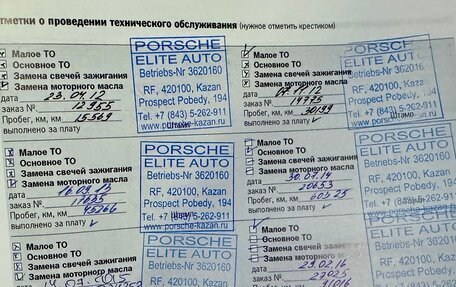 тметки о проведении технического обслуживания (нужное отметить крестиком)
Малое ТО
Основное ТО
Замена свечей зажигания
Замена моторного масла
дата 23.04.12
заказ №. 12955
Пробег, км, км 15569
выполнено за плату
Штамп
PORSCHE
ELITE AUTO
Betriebs-Nr 3620160
RF, 420100, Kazan
Prospect Pobedy, 194
Tel. +7 (843) 5-262-911
www.porsche-kazan.ru
Малое ТО
Основное ТО
Замена свечей зажигания
Замена моторного масла
дата
заказ №. 14975
Пробег, км, км 30199
выполнено за плату
Штамп
PORSCHE
ELITE AUTO
Betriebs-Nr 3620160
RF, 420100, Kazan
Prospect Pobedy, 194
Tel. +7 (843) 5-262-911
www.porsche-kazan.ru
Малое ТО
Основное ТО
Замена свечей зажигания
Замена моторного масла
дата
заказ №.
Пробег, км, км 45266
выполнено за плату
Штамп
PORSCHE
ELITE AUTO
Betriebs-Nr 3620160
RF, 420100, Kazan
Prospect Pobedy, 194
Tel. +7 (843) 5-262-911
www.porsche-kazan.ru
Малое ТО
Основное ТО
Замена свечей зажигания
Замена моторного масла
дата 30.01.14
заказ №. 20653
Пробег, км, км
выполнено за плату
PORSCHE
ELITE AUTO
Betriebs-Nr 3620160
RF, 420100, Kazan
Prospect Pobedy, 194
Tel. +7 (843) 5-262-911
www.porsche-kazan.ru
Малое ТО
Основное ТО
Замена свечей зажигания
Замена моторного масла
дата
PORSCHE
ELITE AUTO
Betriebs-Nr 3620160
RF, 420100, Kazan
Малое ТО
Основное ТО
Замена свечей
Замена моторного
дата 29.02.16
заказ №. 27025
PORSCHE
ELITE AUTO
Betriebs-Nr 3620160
RF, 420100, Kazan